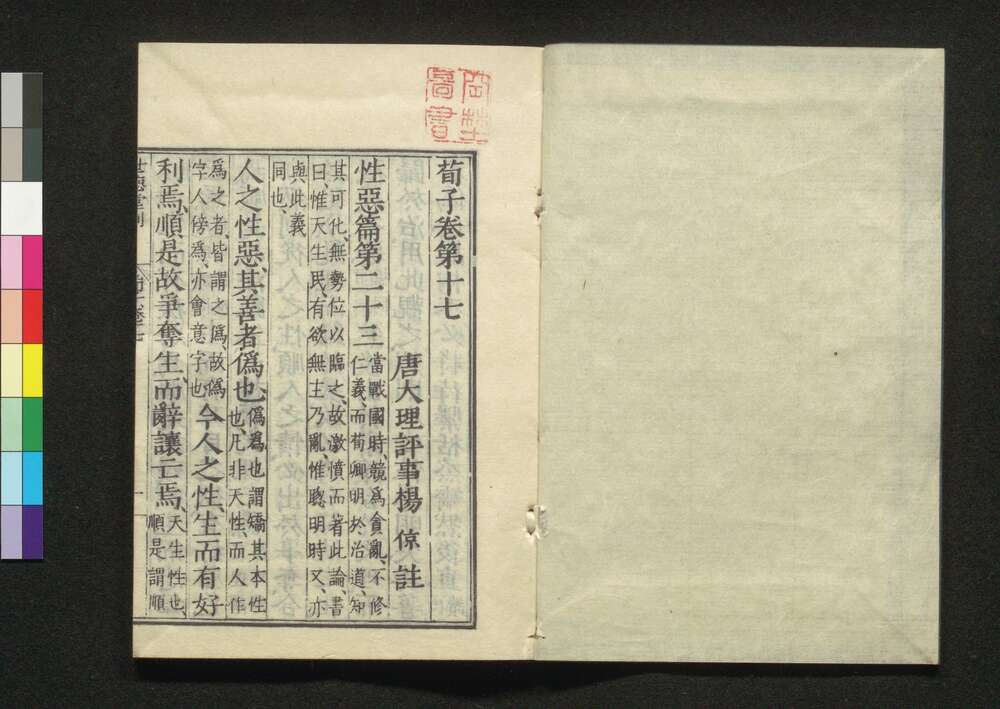 荀子卷第十七
唐大理評事楊倞註
性惡篇第二十三 當戰國時、競爲貪亂、不修
仁義、而荀卿明於治道、知
其可化、無勢位以臨之、故激憤而著此論、書
曰、惟天生民、有欲無主乃亂惟聰明時乂、亦
與此義
同也、
人之性惡、其善者僞也、 僞爲也謂矯其本性
也、凡非天性、而人作
爲之者、皆謂之僞、故僞
字人傍爲、亦會意字也、
今人之性、生而有好
利焉、順是故爭奪生、而辭讓亡焉、 天生性也、
順是謂順
世德堂刊
一
圖書